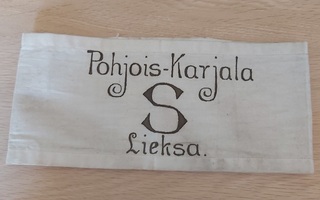 Pohjois-Karjala
S
Lieksa.